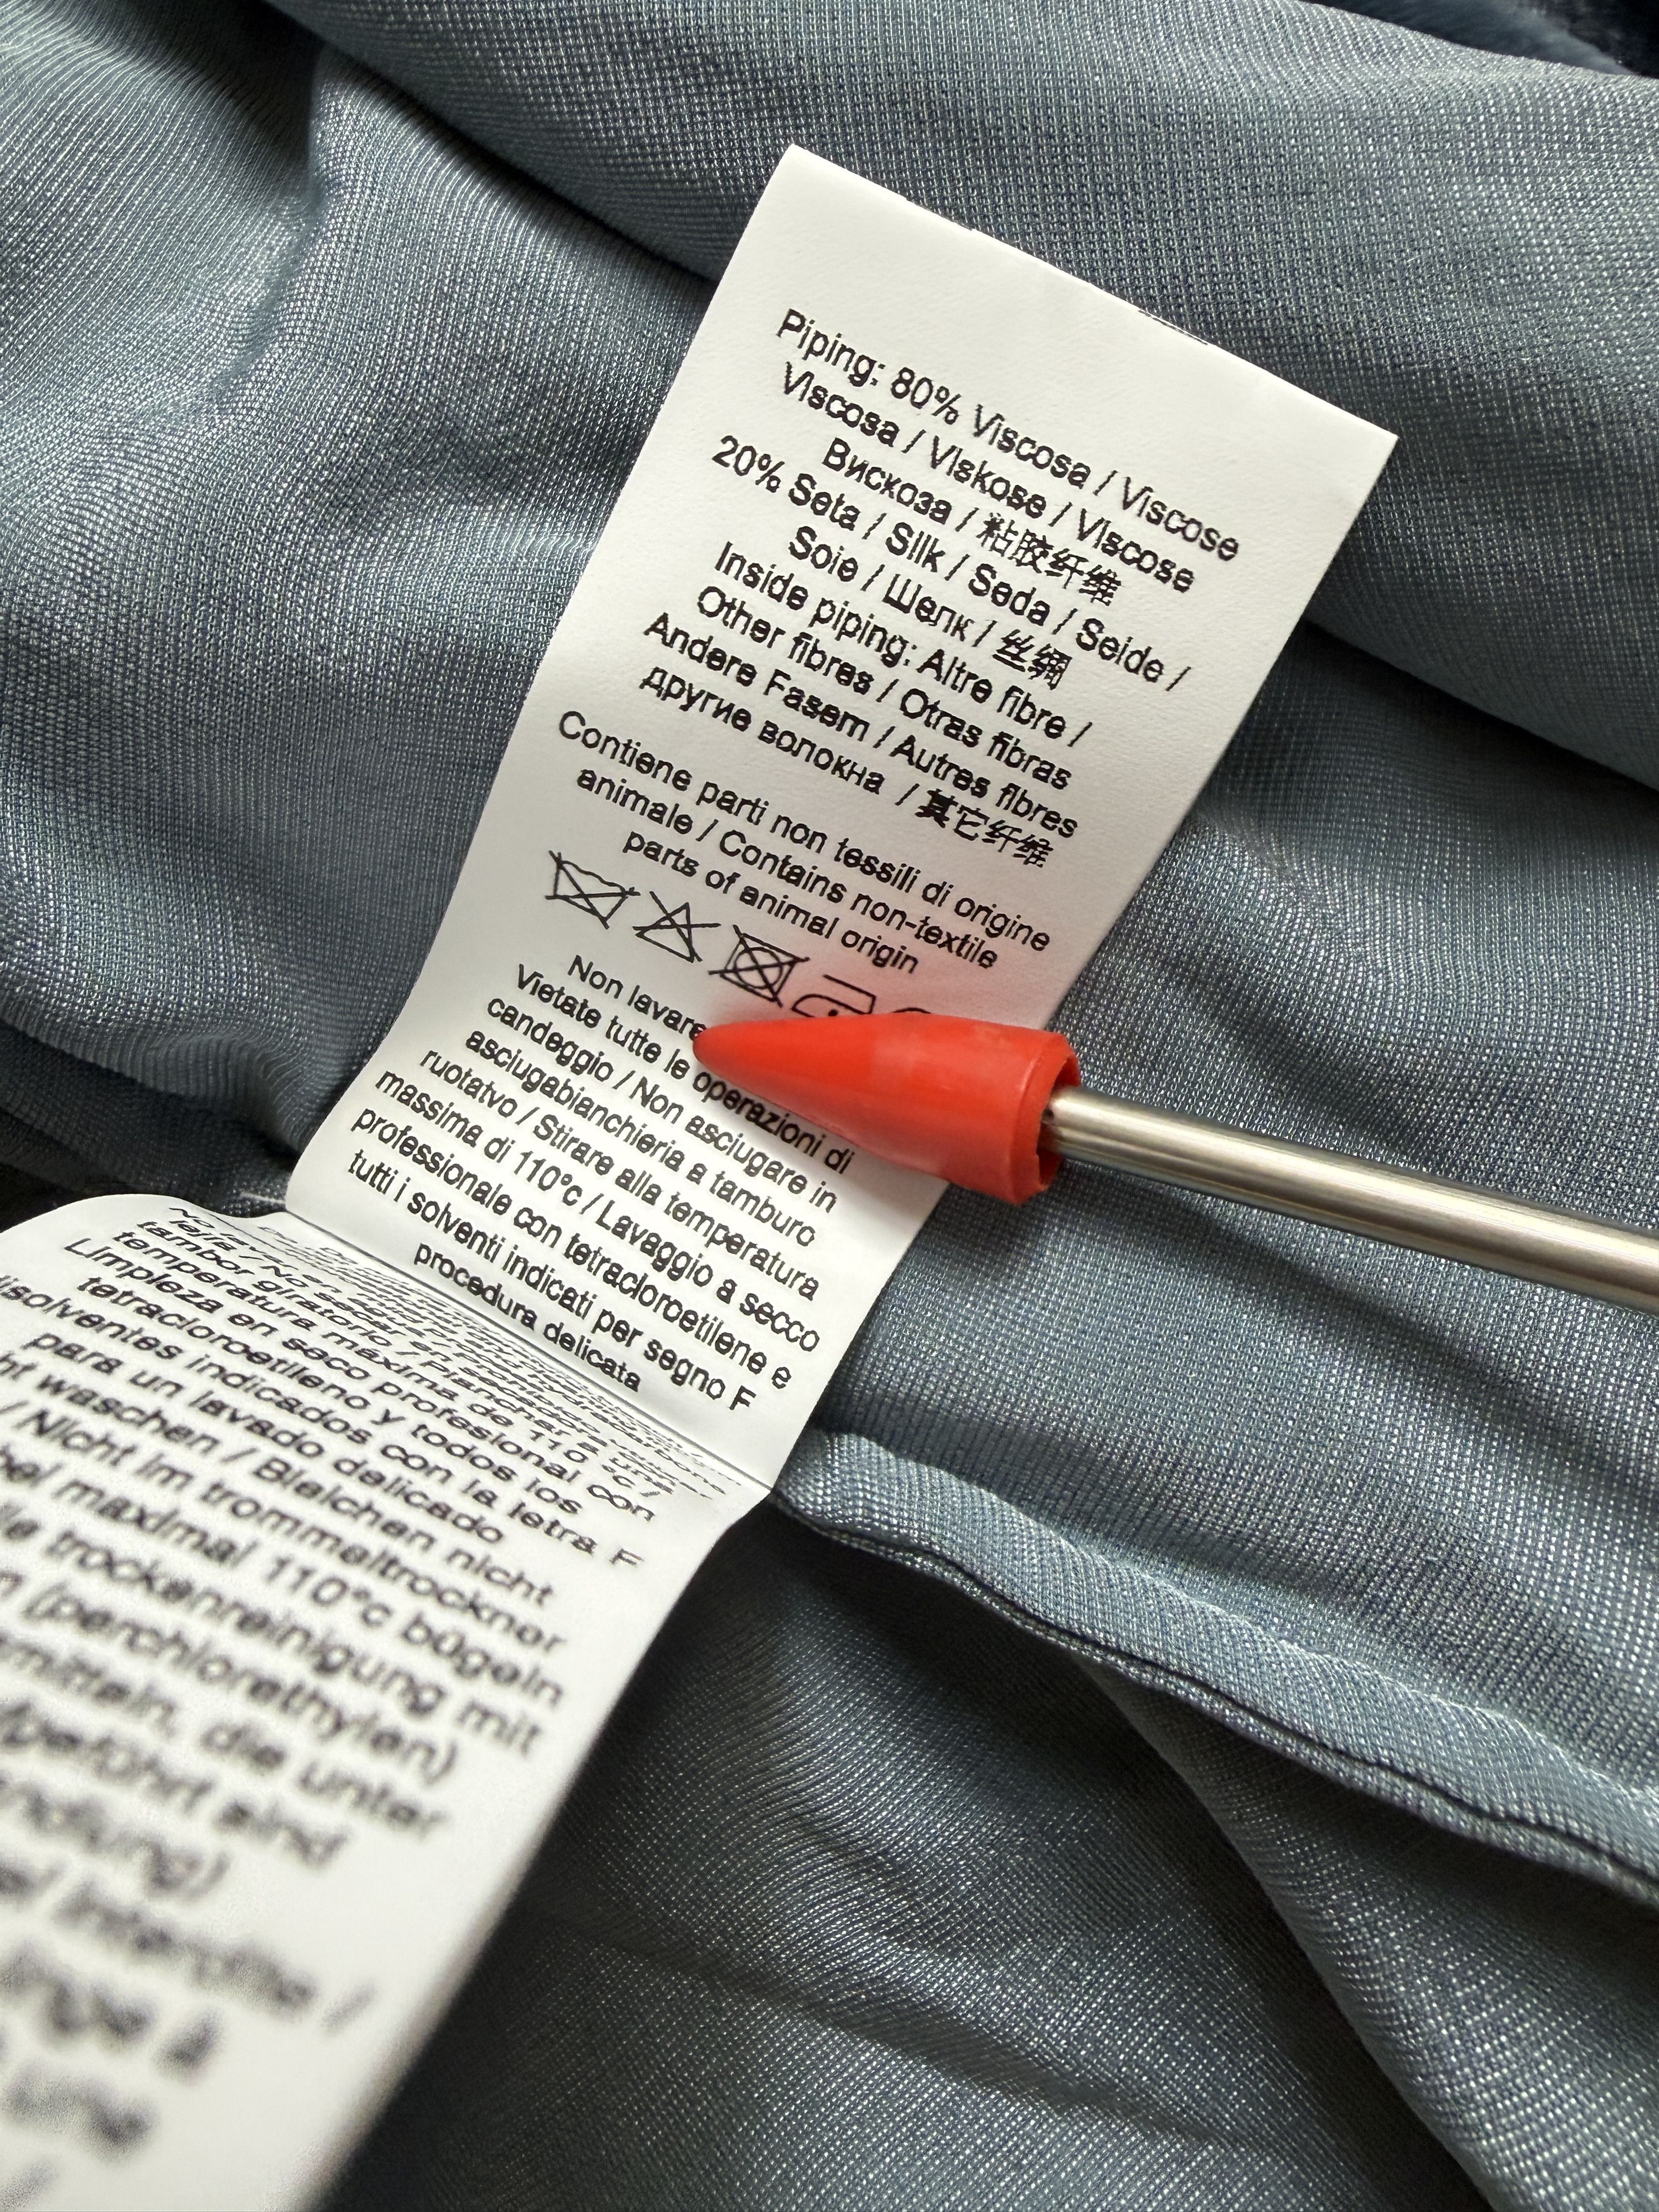 Piping: 80% Viscosa / Viscose
Viscosa / Viskose / Viscose
Вискоза / 粘胶纤维
20% Seta / Silk / Seda / Seide /
Soie / Шелк / 丝绸
Inside piping: Altre fibre /
Other fibres / Otras fibras
Andere Fasern / Autres fibres
другие волокна / 其它纤维
Contiene parti non tessili di origine
animale / Contains non-textile
parts of animal origin
Non lavare
Vietate tutte le operazioni di
candeggio / Non asciugare in
asciugabiancheria a tamburo
ruotatvo / Stirare alla temperatura
massima di 110°c / Lavaggio a secco
professionale con tetracloroetilene e
tutti i solventi indicati per segno F
procedura delicata
tambor giratorio / Planchar a una
temperatura máxima de 110 °c /
Limpieza en seco profesional con
tetracloroetileno y todos los
disolventes indicados con la letra F
para un lavado delicado
waschen / Bleichen nicht
/ Nicht im trommeltrockner
bei maximal 110°c bügeln
trockenreinigung mit
(perchlorethylen)
die unter
sind